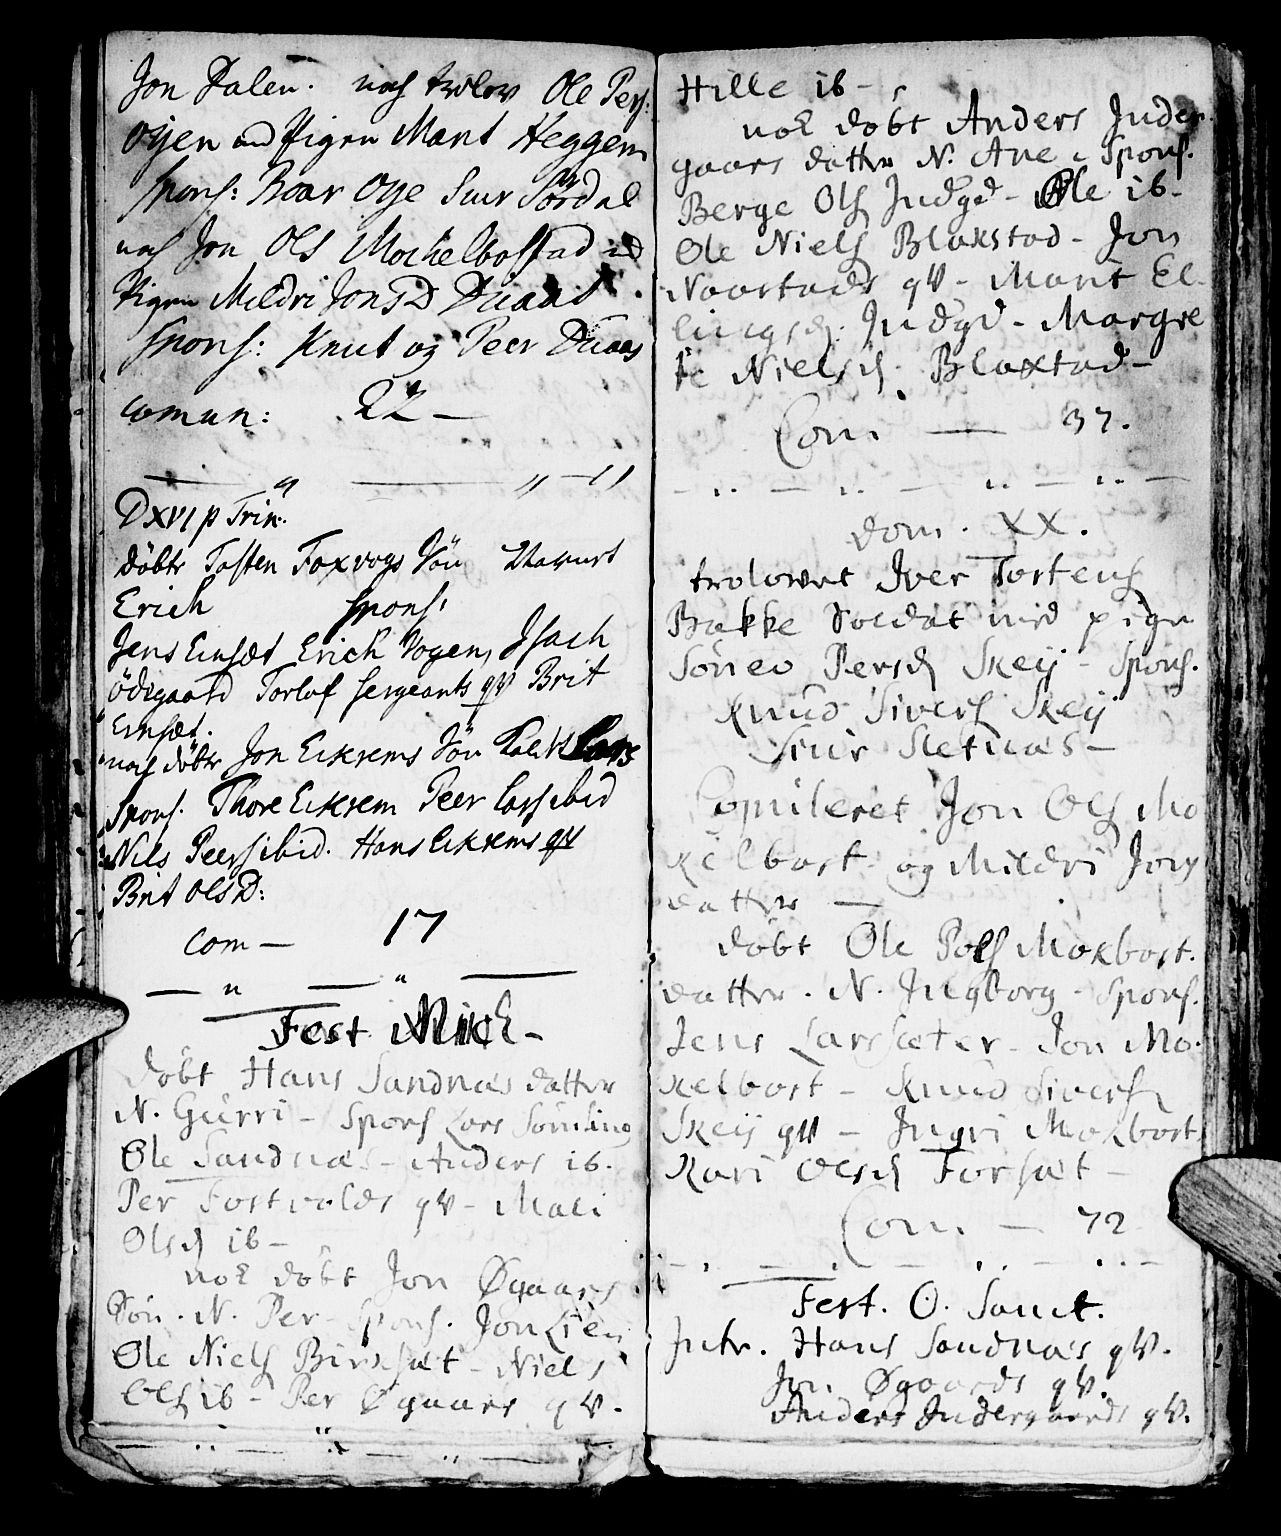 Jon Dalen. nach trolov Ole Pers:
oyen and Pigen Marit Heggem
spons: Roar Oye Siur Sördal
nach Jon Ols Mochelbostad ad
Pigen Mildri JonsD Duaas
spons: Knut og Peer Duaas
comun: 22 —
D XVI p Trin:
döbte Tosten Foxvogs Sön Navnet
Erich spons:
Jens Einsæt Erich Vogen, Isach
ödegaard Torlof sergeants qv Brit
Einsæt.
nach döbte Jon Eikrems Sön kaldt Lars
spons. Thore Eikrem Peer Lars ibid
Nils Peers ibid. Hans Eikrems qv
Brit OlsD:
com — 17
Fest Mich —
döbt Hans Sandnæs datter
N. Gurri — Spons Lars Sömling
Ole Sandnæs — Anders ib.
Per Fostvolds qv — Mali
Olsd ib —
nok döbt Jon Øgaars
Sön. N. Per — Spons. Jon Lien
Ole Niels Birksæt — Niels
Ols ib — Per Øgaars qv.
Hille ib —
nok döbt Anders Inder
gaars datter N. Ane. Spons.
Berge Ols Indgd — Ole ib —
Ole Niels Blakstad — Jon
Naastads qv — Marit El-
lingsd. Indgd — Margre
te Nielsd. Blakstad —
Com. — 37.
Dom. XX.
trolovet Iver Tostens
Bakke Soldat med pigen
Sönev Persd Skeij — Spons.
Knud Sivers Skeij
Siur Sletnæs —
Copuleret Jon Ols Mo
kelbost og Mildri Jons
datter —
döbt Ole Pols Mokbost.
datter. N. Ingborg — Spons.
Jens Larssæter — Jon Mo-
kelbost — Knud Sivers
Skeij qv — Ingri Mokbost
Kari Olsd Forsæt —
Com. — 72
Fest. O. Sanct.
Intr. Hans Sandnæs qv.
Jon Øgaards qv.
Anders Indergaards qv.